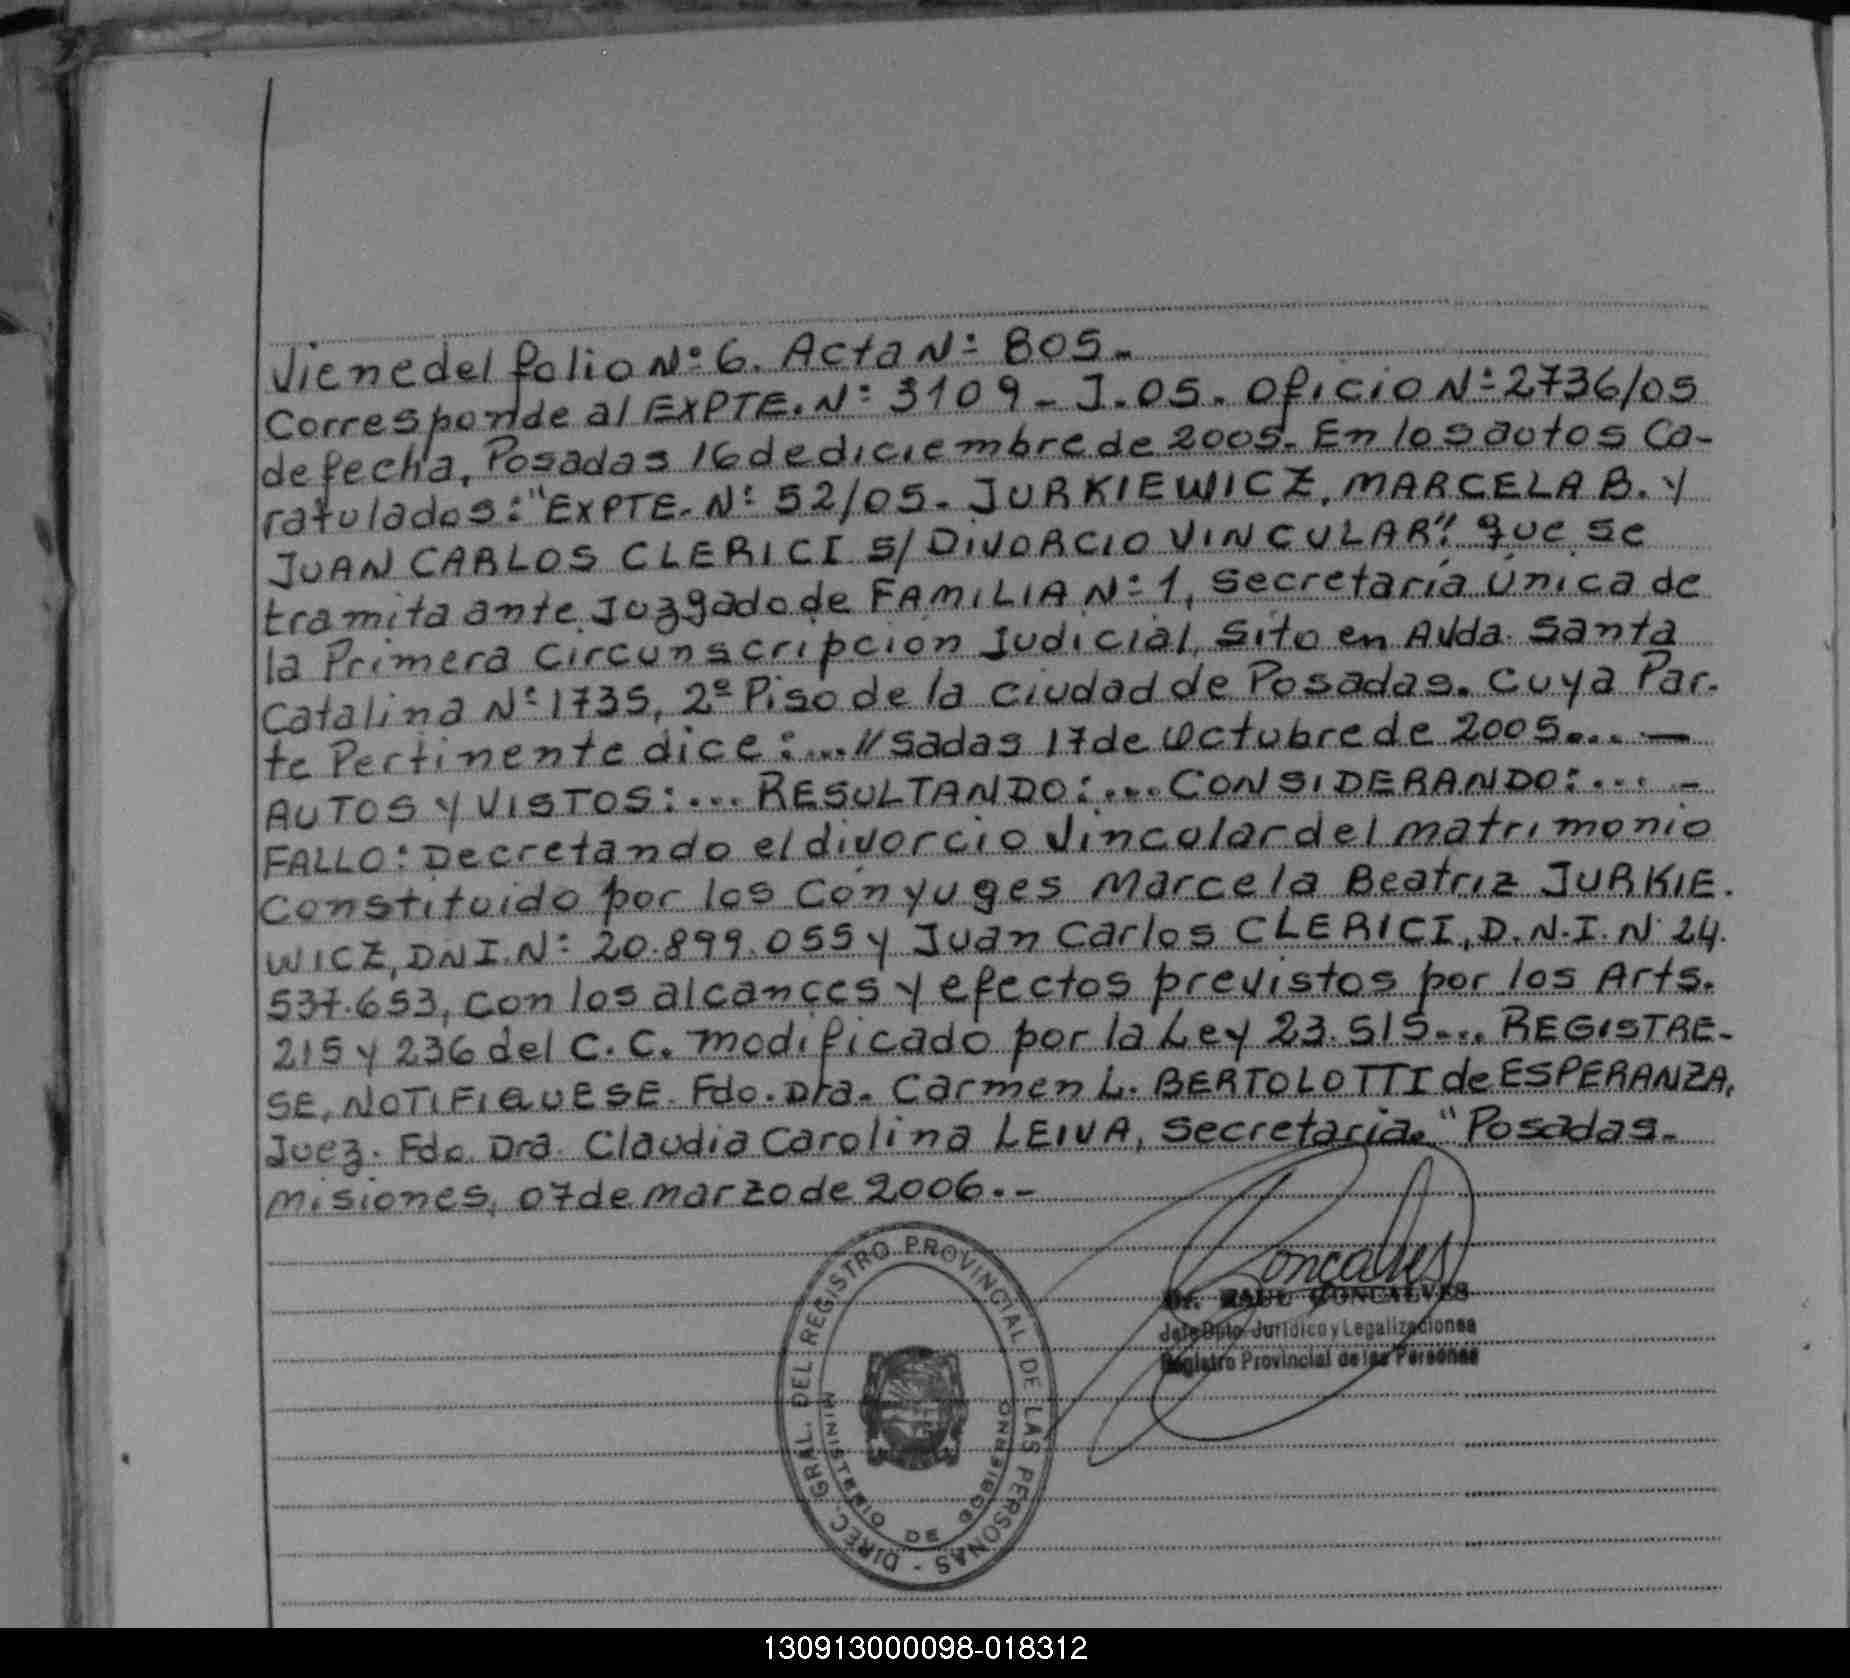 Viene del folio Nº 6. Acta Nº 805.-
Corresponde al EXPTE. Nº 3109-J.05. Oficio Nº 2736/05
de fecha, Posadas 16 de diciembre de 2005. En los autos Ca-
ratulados: "EXPTE. Nº 52/05. JURKIEWICZ, MARCELA B. y
JUAN CARLOS CLERICI S/ DIVORCIO VINCULAR". que se
tramita ante Juzgado de FAMILIA Nº 1, Secretaría Única de
la Primera Circunscripción Judicial, Sito en Avda. Santa
Catalina Nº 1735, 2º Piso de la Ciudad de Posadas. Cuya Par-
te Pertinente dice:...//sadas 17 de Octubre de 2005.... —
AUTOS Y VISTOS:... RESULTANDO:... CONSIDERANDO:... -
FALLO: Decretando el divorcio Vincular del matrimonio
Constituido por los Cónyuges Marcela Beatriz JURKIE.
WICZ, DNI. Nº 20.899.055 y Juan Carlos CLERICI, D.N.I. Nº 24.
537.653, con los alcances y efectos previstos por los Arts.
215 y 236 del C.C. modificado por la Ley 23.515.... REGISTRE-
SE, NOTIFIQUESE. Fdo. Dra. Carmen L. BERTOLOTTI de ESPERANZA,
Juez. Fdo. Dra. Claudia Carolina LEIVA, Secretaria." Posadas.
Misiones, 07 de marzo de 2006.-
Goncalves
Dr. RAUL GONCALVES
Jefe Dpto. Jurídico y Legalizaciones
Registro Provincial de las Personas
DIREC. GRAL. DEL REGISTRO PROVINCIAL DE LAS PERSONAS -
MINISTERIO DE GOBIERNO
130913000098-018312